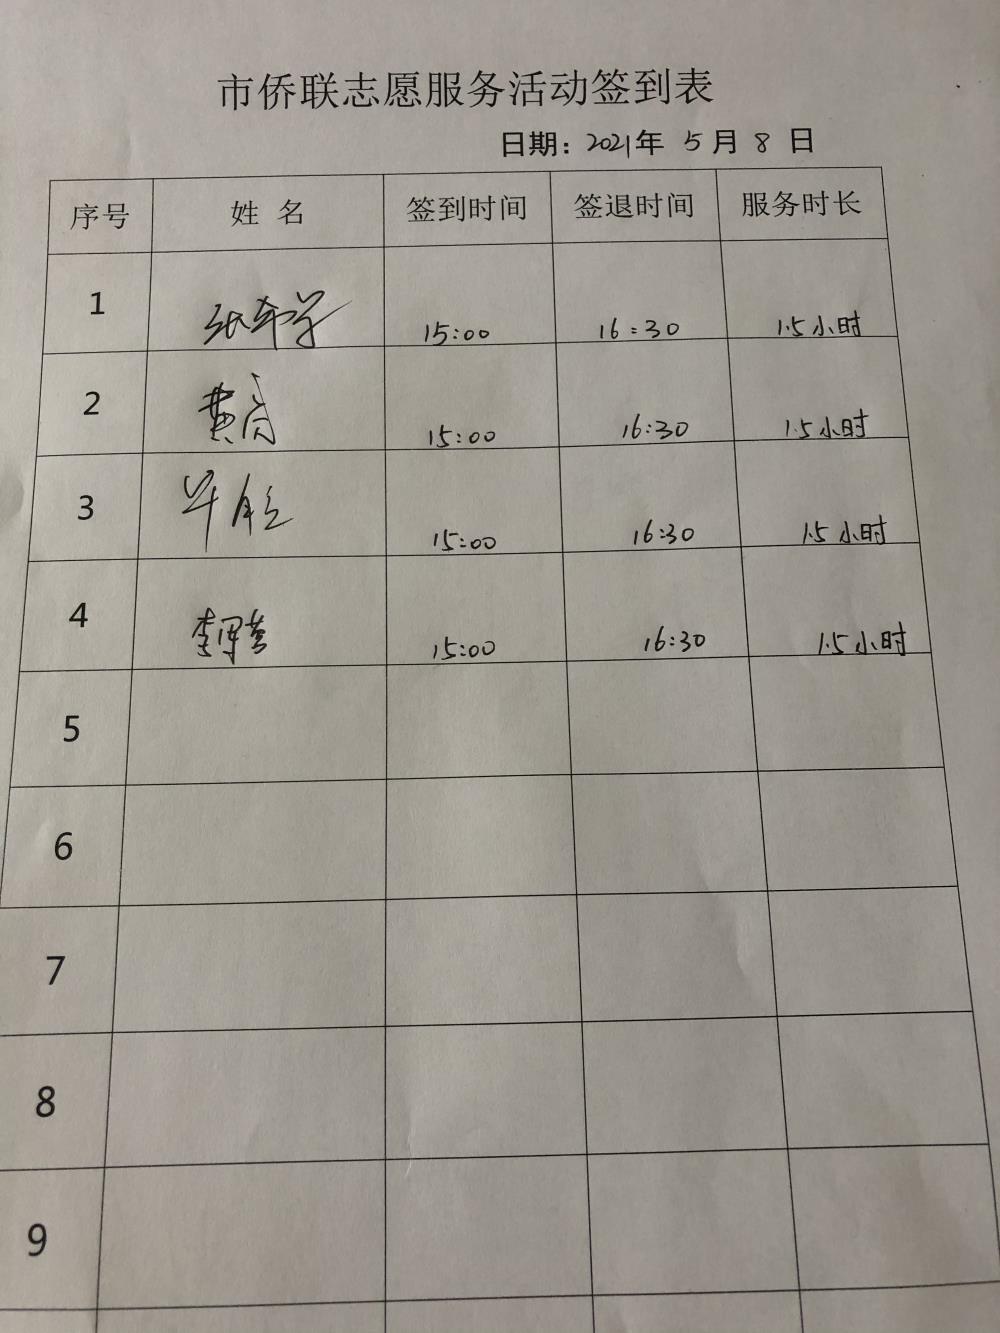 市侨联志愿服务活动签到表
日期：2021年 5 月 8 日
序号 姓 名 签到时间 签退时间 服务时长
1 15:00 16:30 1.5小时
2 黄 15:00 16:30 1.5小时
3 15:00 16:30 1.5小时
4 李 15:00 16:30 1.5小时
5
6
7
8
9